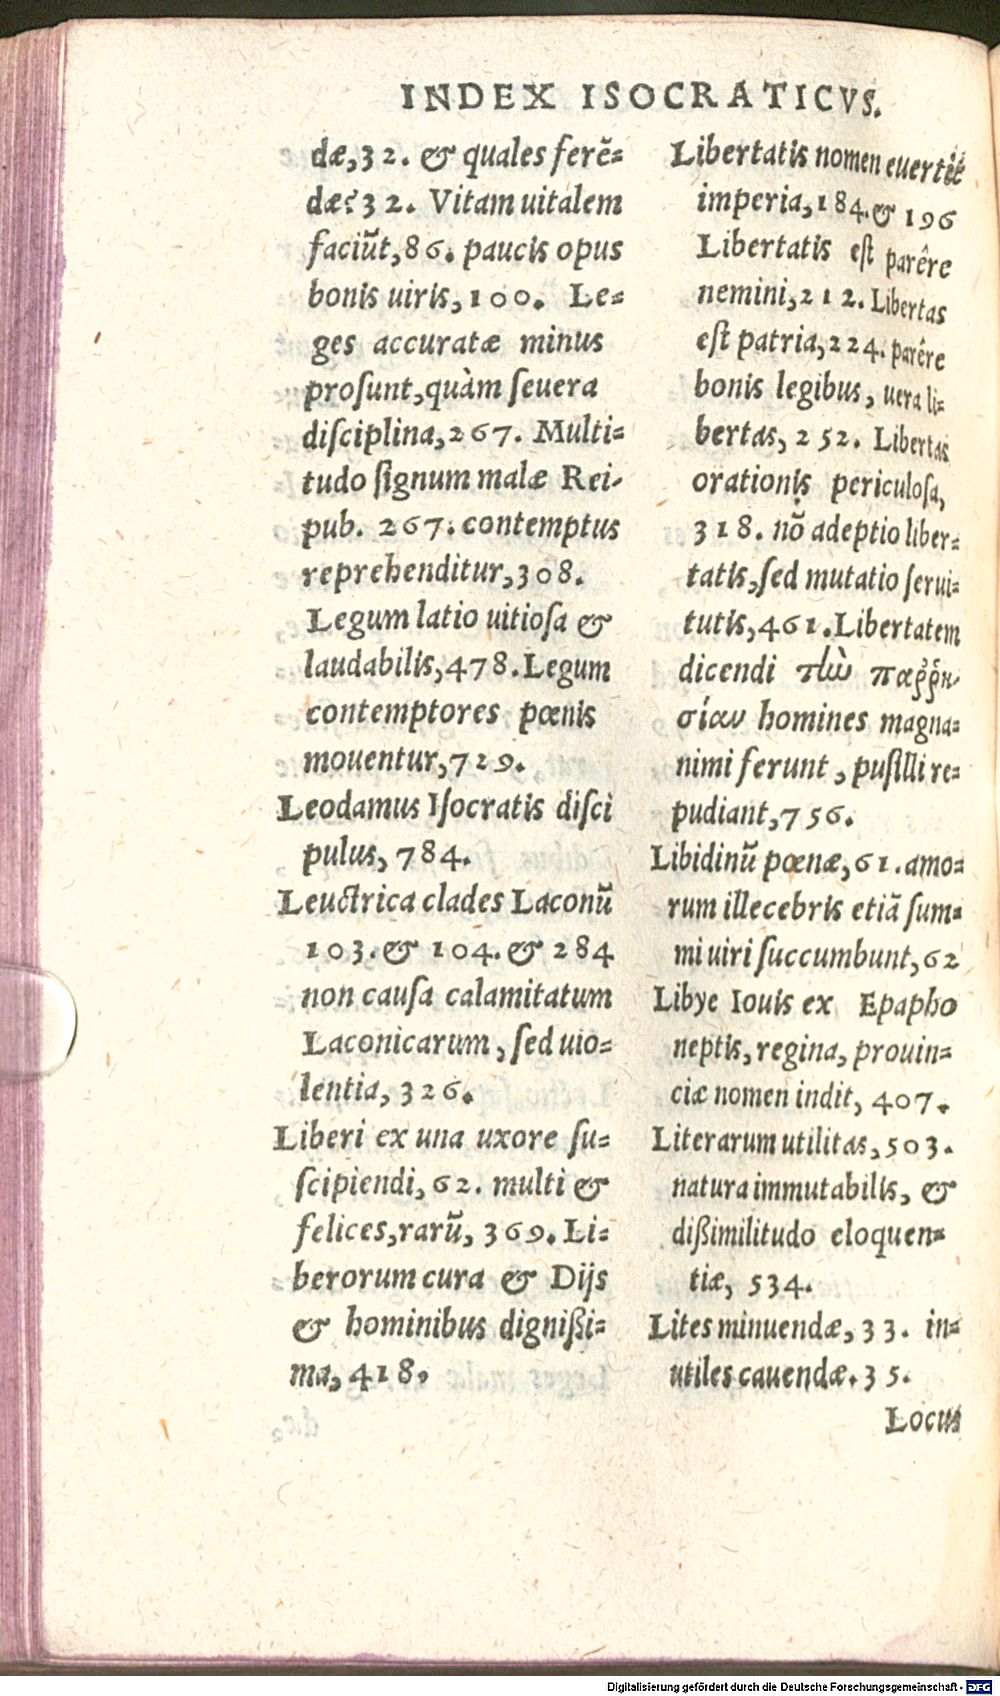 INDEX ISOCRATICVS.
dæ,32. & quales ferẽ-
dæ? 32. Vitam uitalem
faciũt,86. paucis opus
bonis uiris,100. Le-
ges accuratæ minus
proſunt,quàm ſeuera
diſciplina,267. Multi-
tudo ſignum malæ Rei-
pub. 267. contemptus
reprehenditur,308.
Legum latio uitioſa &
laudabilis,478. Legum
contemptores pœnis
mouentur,729.
Leodamus Iſocratis diſci
pulus, 784.
Leuctrica clades Laconũ
103. & 104. & 284
non cauſa calamitatum
Laconicarum, ſed uio-
lentia, 326.
Liberi ex una uxore ſu-
ſcipiendi,62. multi &
felices,rarũ, 369. Li-
berorum cura & Dijs
& hominibus digniſsi-
ma, 418.
Libertatis nomen euertit
imperia,184. & 196
Libertatis eſt parêre
nemini,212. Libertas
eſt patria,224. parêre
bonis legibus, uera li-
bertas, 252. Libertas
orationis periculoſa,
318. nõ adeptio liber-
tatis,ſed mutatio ſerui-
tutis,461. Libertatem
dicendi τὼ παῤῥη-
σίαν homines magna-
nimi ferunt, puſilli re-
pudiant,756.
Libidinũ pœnæ,61. amo-
rum illecebris etiã ſum-
mi uiri ſuccumbunt,62
Libye Iouis ex Epapho
neptis, regina, prouin-
ciæ nomen indit, 407.
Literarum utilitas,503.
natura immutabilis, &
diſsimilitudo eloquen-
tiæ, 534.
Lites minuendæ,33. in-
utiles cauendæ.35.
Locus
Digitalisierung gefördert durch die Deutsche Forschungsgemeinschaft - DFG